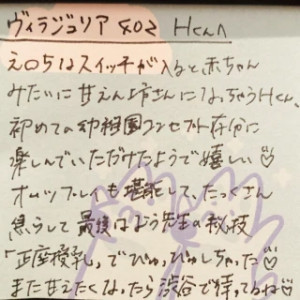 ヴィラジュリア 402 Hくんへ
え〇ちはスイッチが入ると赤ちゃん
みたいに甘えん坊さんになっちゃうHくん、
初めての幼稚園コンセプト存分に
楽しんでいただけたようで嬉しい♡
オムツプレイも堪能して、たっくさん
焦らして最後はよう先生の秘技
「正座授乳」でぴゅっぴゅしちゃった♡
また甘えたくなったら渋谷で待ってるね♡